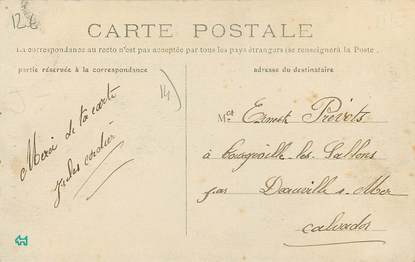 12 €
CARTE POSTALE
La correspondance au recto n'est pas acceptée par tous les pays étrangers (se renseigner à la Poste.
partie réservée à la correspondance
adresse du destinataire
14)
Merci de ta carte
Mr Ernest Prévots
à les Sablons
par Deauville s. Mer
calvados